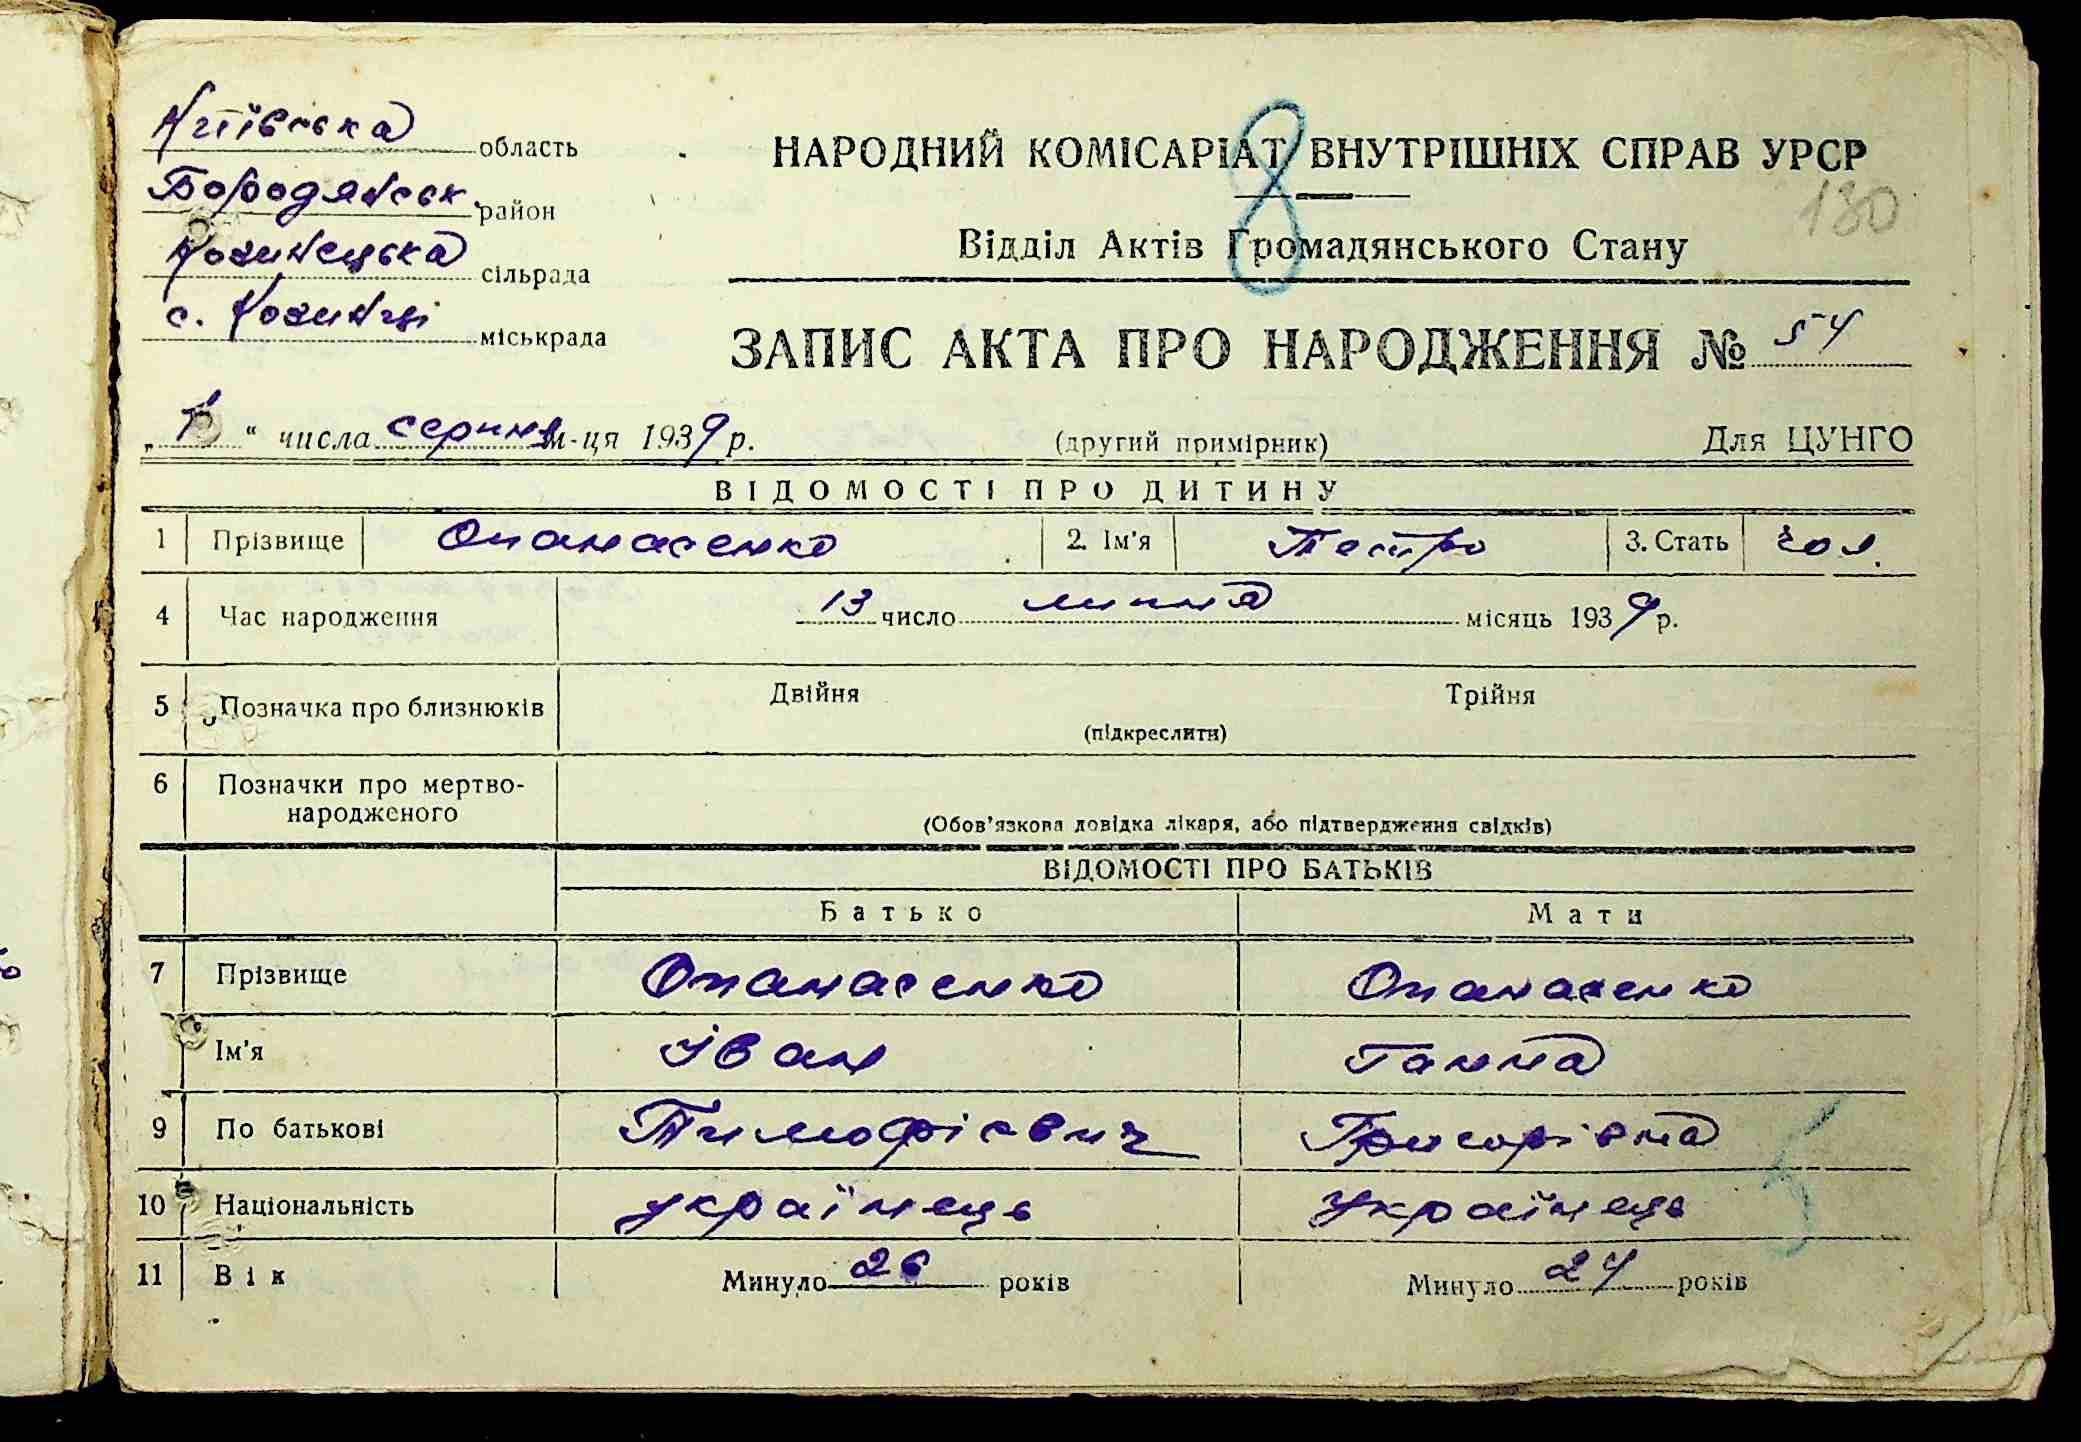 Київська область
Бородянськ. район
Козинецька сільрада
с. Козинці міськрада
НАРОДНИЙ КОМІСАРІАТ ВНУТРІШНІХ СПРАВ УРСР
8
130
Відділ Актів Громадянського Стану
ЗАПИС АКТА ПРО НАРОДЖЕННЯ № 54
„1“ числа серпня м-ця 1939 р. (другий примірник) Для ЦУНГО
ВІДОМОСТІ ПРО ДИТИНУ
1 Прізвище Опанасенко 2. Ім'я Петро 3. Стать чол.
4 Час народження 13 число липня місяць 1939 р.
5 Позначка про близнюків Двійня Трійня
(підкреслити)
6 Позначки про мертво-
народженого
(Обов'язкова довідка лікаря, або підтвердження свідків)
ВІДОМОСТІ ПРО БАТЬКІВ
Батько Мати
7 Прізвище Опанасенко Опанасенко
Ім'я Іван Ганна
9 По батькові Тимофієвич Григорівна
10 Національність українець українець
11 Вік Минуло 26 років Минуло 24 років